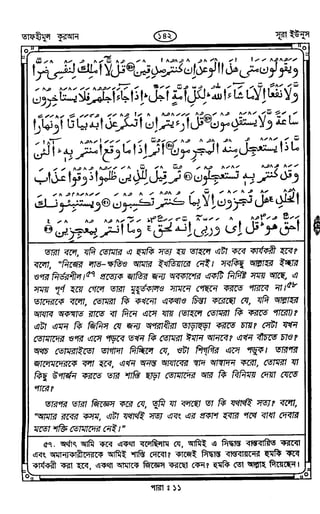 তাফহীমুল কুরআন
১৪২
সূরা ইউনুস
وَيَقُولُونَ مَتَىٰ هَٰذَا الْوَعْدُ إِنْ كُنْتُمْ صَٰدِقِينَ ۞ قُلْ لَّا أَمْلِكُ لِنَفْسِي ضَرًّا
وَّلَا نَفْعًا إِلَّا مَا شَاءَ اللَّهُ ۗ لِكُلِّ أُمَّةٍ أَجَلٌ ۚ إِذَا جَاءَ أَجَلُهُمْ فَلَا يَسْتَأْخِرُونَ
سَاعَةً وَّلَا يَسْتَقْدِمُونَ ۞ قُلْ أَرَءَيْتُمْ إِنْ أَتَىٰكُمْ عَذَابُهُ بَيَاتًا أَوْ نَهَارًا
مَّاذَا يَسْتَعْجِلُ مِنْهُ الْمُجْرِمُونَ ۞ أَثُمَّ إِذَا مَا وَقَعَ أٰمَنْتُمْ بِهِ ۚ آلْـٰٔنَ
وَقَدْ كُنْتُمْ بِهِ تَسْتَعْجِلُونَ ۞ ثُمَّ قِيلَ لِلَّذِينَ ظَلَمُوا ذُوقُوا عَذَابَ
الْخُلْدِ ۚ هَلْ تُجْزَوْنَ إِلَّا بِمَا كُنْتُمْ تَكْسِبُونَ ۞ وَيَسْتَنْبِئُونَكَ
أَحَقٌّ هُوَ ۖ قُلْ إِي وَرَبِّي إِنَّهُ لَحَقٌّ ۖ وَمَا أَنْتُمْ بِمُعْجِزِينَ ۞
তারা বলে, যদি তোমার এ হুমকি সত্য হয় তাহলে এটা কবে কার্যকরী হবে?
বলো, "নিজের লাভ-ক্ষতিও আমার ইখতিয়ারে নেই। সবকিছু আল্লাহর ইচ্ছার
ওপর নির্ভরশীল।৫৭ প্রত্যেক জাতির জন্য অবকাশের একটি নির্দিষ্ট সময় আছে, এ
সময় পূর্ণ হয়ে গেলে তারা মুহূর্তকালও সামনে পেছনে করতে পারবে না।৫৮
তাদেরকে বলো, তোমরা কি কখনো একথাও চিন্তা করেছো যে, যদি আল্লাহর
আযাব অকস্মাত রাতে বা দিনে এসে যায় (তাহলে তোমরা কি করতে পারো)?
এটা এমন কি জিনিস যে জন্য অপরাধীরা তাড়াহুড়া করতে চায়? সেটা যখন
তোমাদের ওপর এসে পড়বে তখন কি তোমরা ঈমান আনবে? এখন বাঁচতে চাও?
অথচ তোমরাইতো তাগাদা দিচ্ছিলে যে, ওটা শিগগির এসে পড়ুক। তারপর
জালেমদেরকে বলা হবে, এখন অনন্ত আযাবের স্বাদ আস্বাদন করো, তোমরা যা
কিছু উপার্জন করতে তার শাস্তি ছাড়া তোমাদের আর কি বিনিময় দেয়া যেতে
পারে?
তারপর তারা জিজ্ঞেস করে যে, তুমি যা বলছো তা কি যথার্থই সত্য? বলো,
"আমার রবের কসম, এটা যথার্থই সত্য এবং এর প্রকাশ হবার পথে বাধা দেবার
মতো শক্তি তোমাদের নেই।"
৫৭. অর্থাৎ আমি কবে একথা বলেছিলাম যে, আমিই এ সিদ্ধান্ত বাস্তবায়িত করবো
এবং অমান্যকারীদেরকে আমিই শাস্তি দেবো? কাজেই সিদ্ধান্ত বাস্তবায়নের হুমকি কবে
কার্যকরী করা হবে, একথা আমাকে জিজ্ঞেস করছো কেন? হুমকি তো আল্লাহ দিয়েছেন।
পারা ঃ ১১